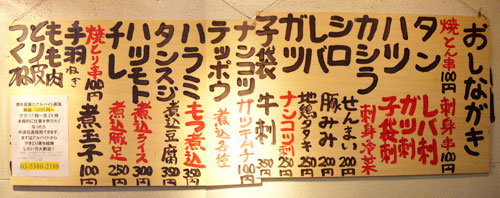 おしながき
焼とん串100円
タン
ハツ
カシラ
シロ
レバ
ガツ
子袋
ナンコツ
テッポウ
ハラミ
タンスジ
ハツモト
チレ
焼とり串100円
手羽
ねぎ
もも肉
とり皮
つくね
刺身串100円
レバ刺
ガツ刺
子袋刺
刺身冷菜
せんまい200円
豚みみ200円
地鶏タタキ250円
ナンコツ刺
牛刺
ガツテムナ100円
煮込各種
もつ煮込
煮込豆腐350円
煮込ライス300円
煮込豚足250円
煮玉子100円
03-5380-2188